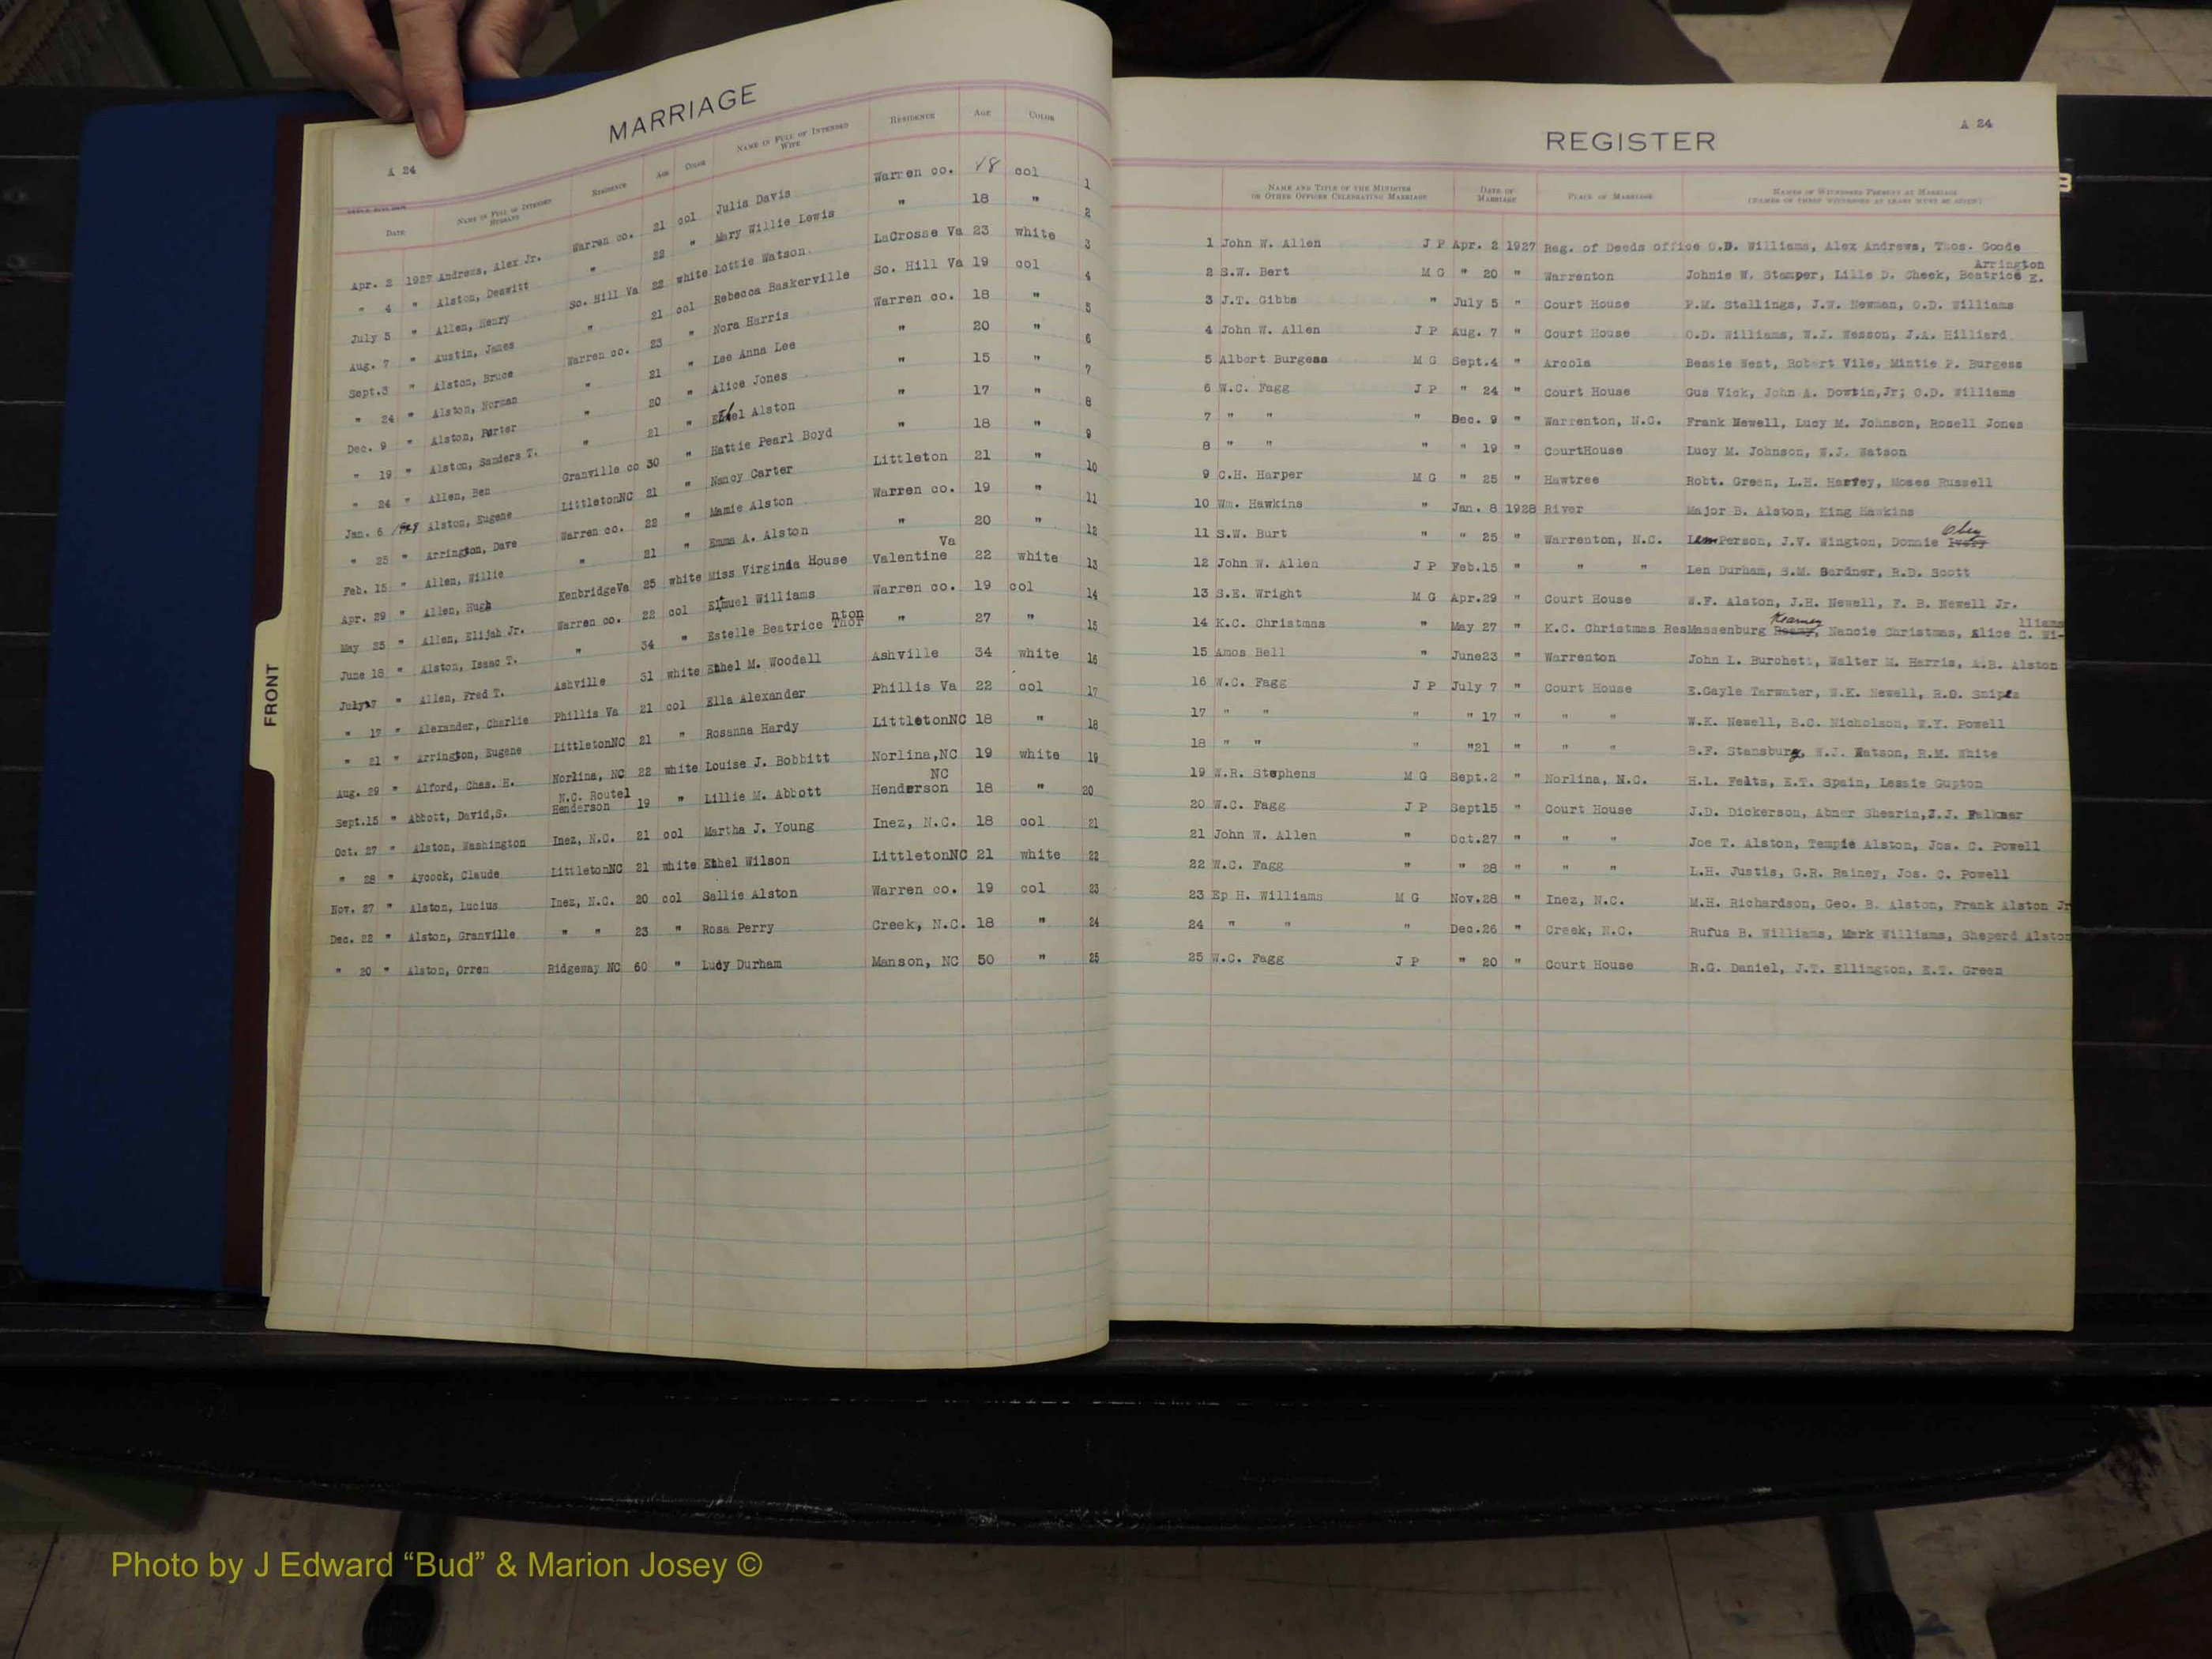 MARRIAGE
A 24
DATE NAME IN FULL OF INTENDED HUSBAND RESIDENCE AGE COLOR NAME IN FULL OF INTENDED WIFE RESIDENCE AGE COLOR
Apr. 2 1927 Andrews, Alex Jr. Warren co. 21 col Julia Davis Warren co. 18 col 1
" 4 " Alston, Deawitt " 22 " Mary Willie Lewis " 18 " 2
July 5 " Allen, Henry So. Hill Va 22 white Lottie Watson LaCrosse Va 23 white 3
Aug. 7 " Austin, James " 21 col Rebecca Baskerville So. Hill Va 19 col 4
Sept.3 " Alston, Bruce Warren co. 23 " Nora Harris Warren co. 18 " 5
" 24 " Alston, Norman " 21 " Lee Anna Lee " 20 " 6
Dec. 9 " Alston, Porter " 20 " Alice Jones " 15 " 7
" 19 " Alston, Sanders T. " 21 " Ethel Alston " 17 " 8
" 24 " Allen, Ben Granville co 30 " Hattie Pearl Boyd " 18 " 9
Jan. 6 Alston, Eugene LittletonNC 21 " Nancy Carter Littleton 21 " 10
" 25 " Arrington, Dave Warren co. 22 " Mamie Alston Warren co. 19 " 11
Feb. 15 " Allen, Willie " 21 " Emma A. Alston " 20 " 12
Apr. 29 " Allen, Hugh KenbridgeVa 25 white Miss Virginia House Valentine Va 22 white 13
May 25 " Allen, Elijah Jr. Warren co. 22 col Elmuel Williams Warren co. 19 col 14
June 18 " Alston, Isaac T. " 34 " Estelle Beatrice Thornton " 27 " 15
July 7 " Allen, Fred T. Ashville 31 white Ethel M. Woodall Ashville 34 white 16
" 17 " Alexander, Charlie Phillis Va 21 col Ella Alexander Phillis Va 22 col 17
" 21 " Arrington, Eugene LittletonNC 21 " Rosanna Hardy LittletonNC 18 " 18
Aug. 29 " Alford, Chas. H. Norlina, NC 22 white Louise J. Bobbitt Norlina,NC 19 white 19
Sept.15 " Abbott, David,S. N.C. Route1 Henderson 19 " Lillie M. Abbott Henderson NC 18 " 20
Oct. 27 " Alston, Washington Inez, N.C. 21 col Martha J. Young Inez, N.C. 18 col 21
" 28 " Aycock, Claude LittletonNC 21 white Ethel Wilson LittletonNC 21 white 22
Nov. 27 " Alston, Lucius Inez, N.C. 20 col Sallie Alston Warren co. 19 col 23
Dec. 22 " Alston, Granville " " 23 " Rosa Perry Creek, N.C. 18 " 24
" 20 " Alston, Orren Ridgeway NC 60 " Lucy Durham Manson, NC 50 " 25
FRONT
REGISTER
A 24
NAME AND TITLE OF THE MINISTER OR OTHER OFFICER CELEBRATING MARRIAGE DATE OF MARRIAGE PLACE OF MARRIAGE NAMES OF WITNESSES PRESENT AT MARRIAGE (NAMES OF THREE WITNESSES AT LEAST MUST BE GIVEN)
1 John W. Allen J P Apr. 2 1927 Reg. of Deeds office O.D. Williams, Alex Andrews, Thos. Goode
2 S.W. Bert M G " 20 " Warrenton Johnie W. Stamper, Lille D. Cheek, Beatrice E. Arrington
3 J.T. Gibbs " July 5 " Court House P.M. Stallings, J.W. Newman, O.D. Williams
4 John W. Allen J P Aug. 7 " Court House O.D. Williams, W.J. Wesson, J.A. Hilliard
5 Albert Burgess M G Sept.4 " Arcola Bessie West, Robert Vile, Mintie P. Burgess
6 W.C. Fagg J P " 24 " Court House Gus Vick, John A. Dowtin,Jr; O.D. Williams
7 " " " Dec. 9 " Warrenton, N.C. Frank Newell, Lucy M. Johnson, Rosell Jones
8 " " " " 19 " CourtHouse Lucy M. Johnson, W.J. Watson
9 C.H. Harper M G " 25 " Hawtree Robt. Green, L.H. Harvey, Moses Russell
10 Wm. Hawkins " Jan. 8 1928 River Major B. Alston, King Hawkins
11 S.W. Burt " " 25 " Warrenton, N.C. Lem Person, J.V. Wington, Donnie
12 John W. Allen J P Feb.15 " " " Len Durham, S.M. Gardner, R.D. Scott
13 S.E. Wright M G Apr.29 " Court House W.F. Alston, J.H. Newell, F. B. Newell Jr.
14 K.C. Christmas " May 27 " K.C. Christmas Res Massenburg Kearney, Nancie Christmas, Alice C. Wi-lliams
15 Amos Bell " June23 " Warrenton John L. Burchett, Walter M. Harris, A.B. Alston
16 W.C. Fagg J P July 7 " Court House E.Gayle Tarwater, W.K. Newell, R.O. Snipes
17 " " " " 17 " " " W.K. Newell, B.C. Nicholson, W.Y. Powell
18 " " " "21 " " " B.F. Stansbury, W.J. Watson, R.M. White
19 W.R. Stephens M G Sept.2 " Norlina, N.C. H.L. Felts, E.T. Spain, Lessie Gupton
20 W.C. Fagg J P Sept15 " Court House J.D. Dickerson, Abner Shearin,Z.J. Falkner
21 John W. Allen " Oct.27 " " " Joe T. Alston, Tempie Alston, Jos. C. Powell
22 W.C. Fagg " " 28 " " " L.H. Justis, G.R. Rainey, Jos. C. Powell
23 Ep H. Williams M G Nov.28 " Inez, N.C. M.H. Richardson, Geo. B. Alston, Frank Alston Jr
24 " " " Dec.26 " Creek, N.C. Rufus B. Williams, Mark Williams, Sheperd Alston
25 W.C. Fagg J P " 20 " Court House R.G. Daniel, J.T. Ellington, E.T. Green
Photo by J Edward “Bud” & Marion Josey ©